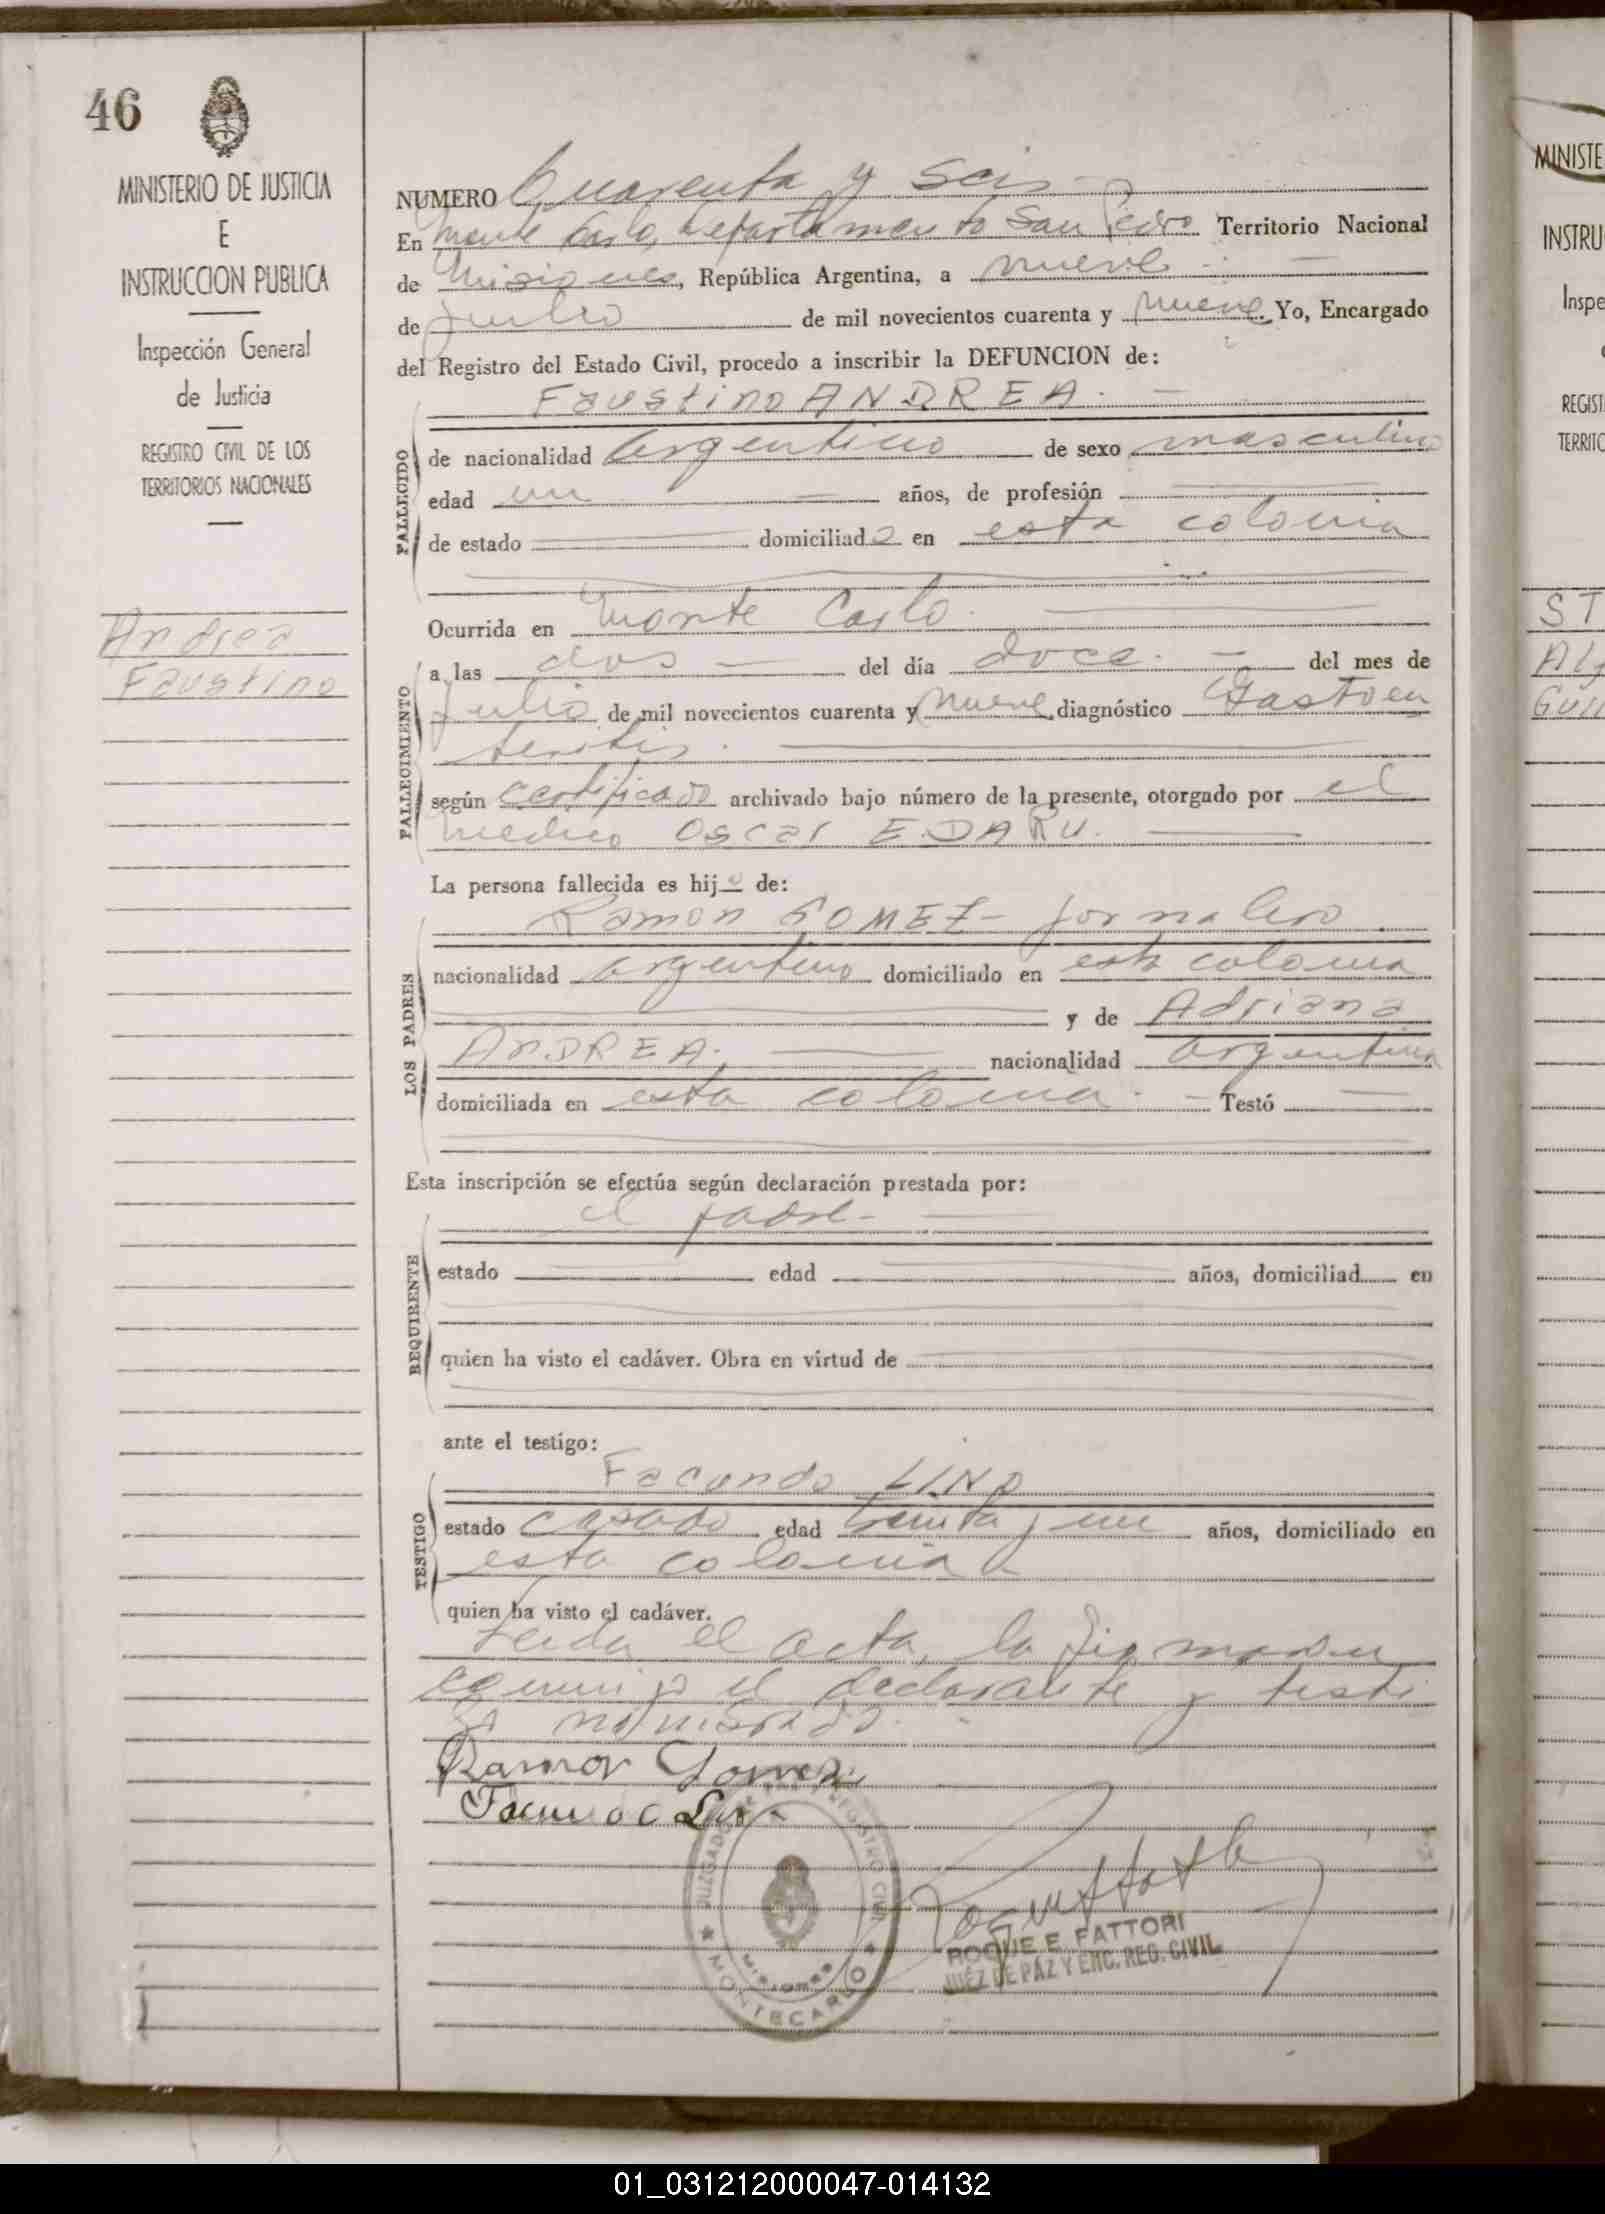 46
MINISTERIO DE JUSTICIA
E
INSTRUCCION PUBLICA
Inspección General
de Justicia
REGISTRO CIVIL DE LOS
TERRITORIOS NACIONALES
Andrea
Faustino
NUMERO Cuarenta y seis
En Monte Carlo, Departamento San Pedro Territorio Nacional
de Misiones, República Argentina, a nueve
de julio de mil novecientos cuarenta y nueve Yo, Encargado
del Registro del Estado Civil, procedo a inscribir la DEFUNCION de:
Faustino ANDREA.
FALLECIDO
de nacionalidad argentino de sexo masculino
edad un años, de profesión
de estado domiciliado en esta colonia
Ocurrida en Monte Carlo.
FALLECIMIENTO
a las dos del día doce. del mes de
julio de mil novecientos cuarenta y nueve diagnóstico Gastoen
teritis.
según certificado archivado bajo número de la presente, otorgado por el
medico Oscar E. DARU.
La persona fallecida es hijo de:
LOS PADRES
Ramon GOMEZ - jornalero
nacionalidad argentino domiciliado en esta colonia
y de Adriana
ANDREA. nacionalidad argentina
domiciliada en esta colonia. Testó
Esta inscripción se efectúa según declaración prestada por:
el padre
REQUIRENTE
estado edad años, domiciliad en
quien ha visto el cadáver. Obra en virtud de
ante el testigo:
TESTIGO
Facundo LINO
estado casado edad treinta y un años, domiciliado en
esta colonia
quien ha visto el cadáver.
Leida el acta, la firmaron
conmigo el declarante y testi
go nombrado.
Ramon Gomez
Facundo
JUZGADO DE PAZ Y REGISTRO CIVIL
MISIONES
MONTECARLO
ROQUE E. FATTORI
JUEZ DE PAZ Y ENC. REG. CIVIL
MINISTE
INSTRU
Inspe
REGIST
TERRITO
ST
01_031212000047-014132